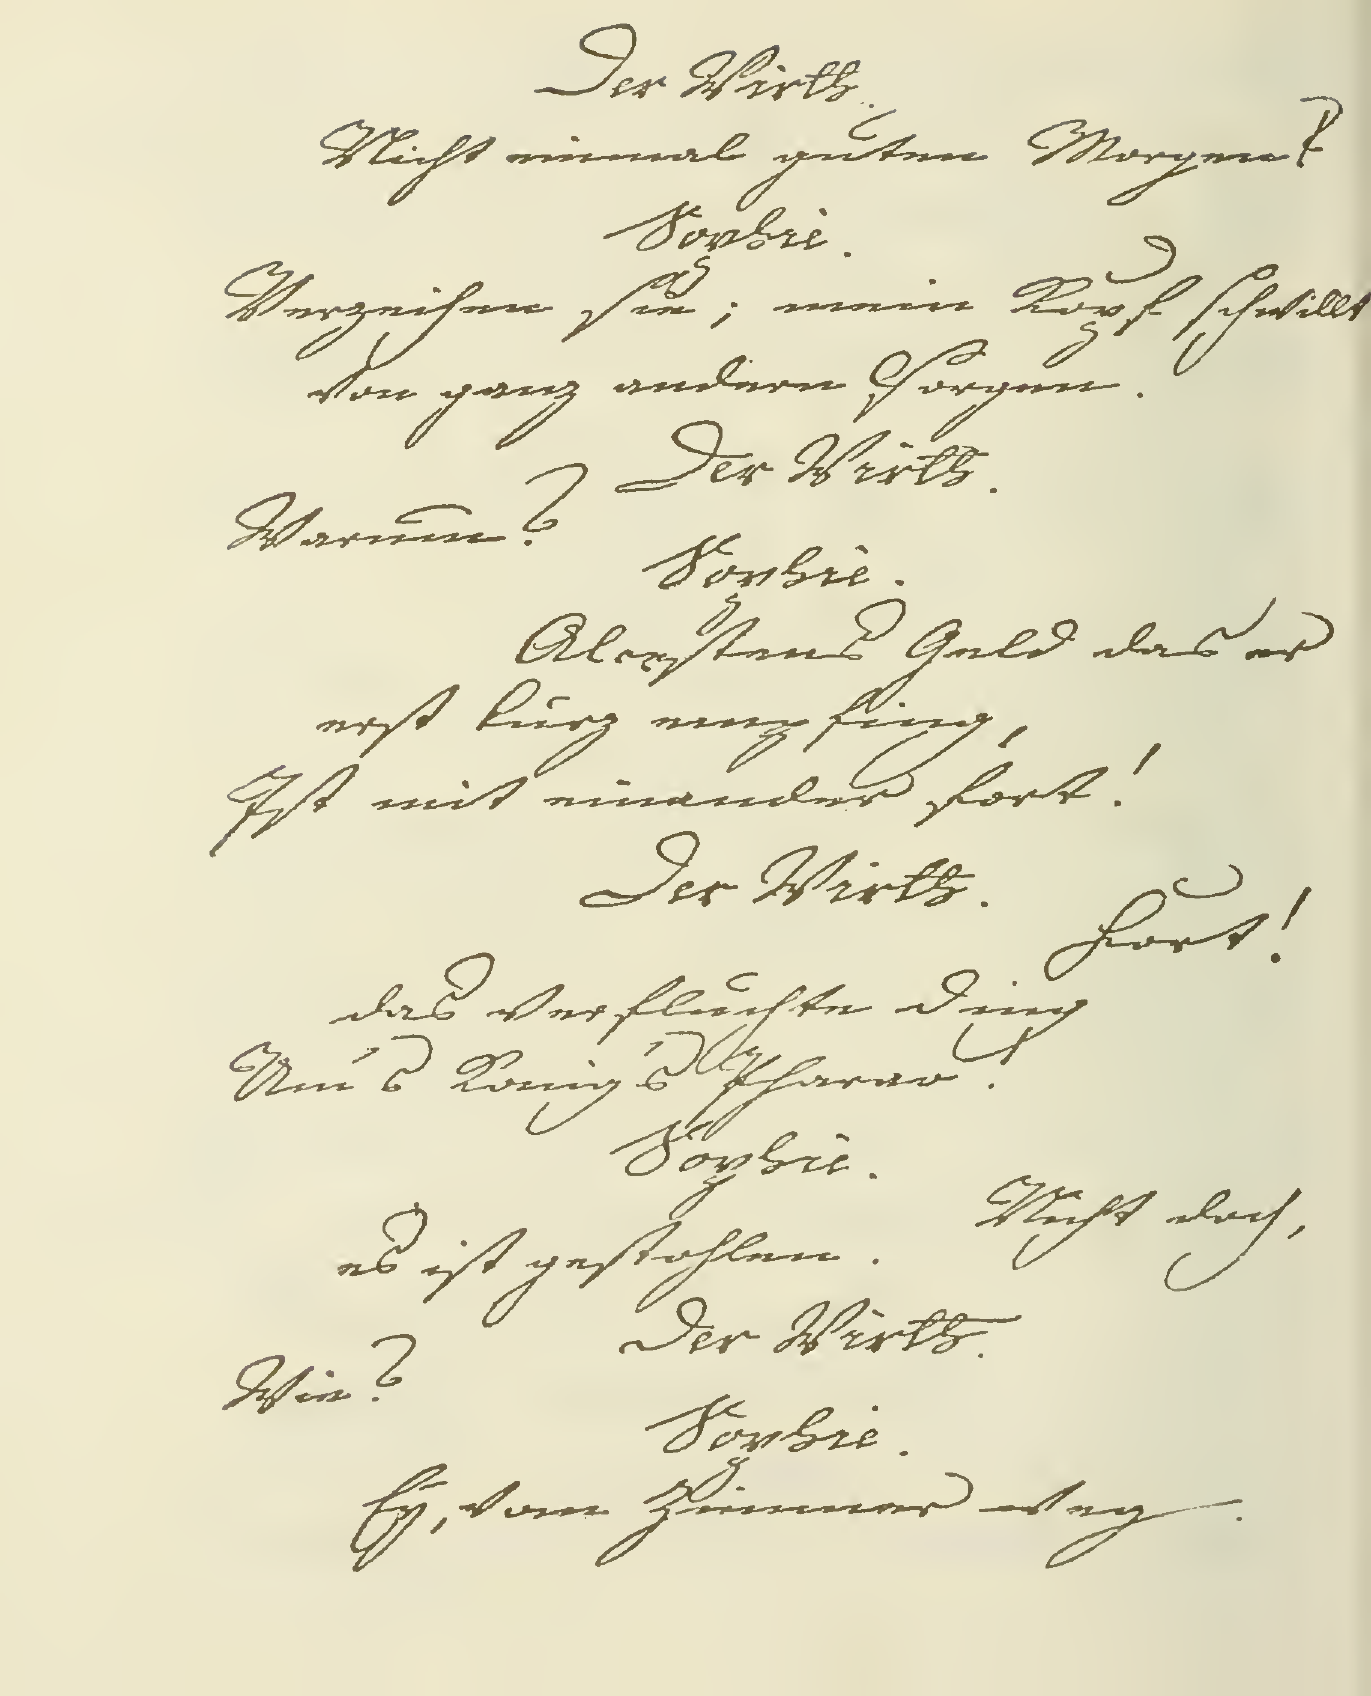 Der Wirth.
Nicht einmal guten Morgen?
Sophie.
Verzeihen sie; mein Kopf schwillt
von ganz andern Sorgen.
Der Wirth.
Warum?
Sophie.
Alcestens Geld das er
erst kurz empfing,
Ist mit einander fort!
Der Wirth.
Fort!
das verfluchte Ding
Um's König's Pharao!
Sophie.
Nicht doch,
es ist gestohlen.
Der Wirth.
Wie?
Sophie.
Ey, vom Zimmer weg.